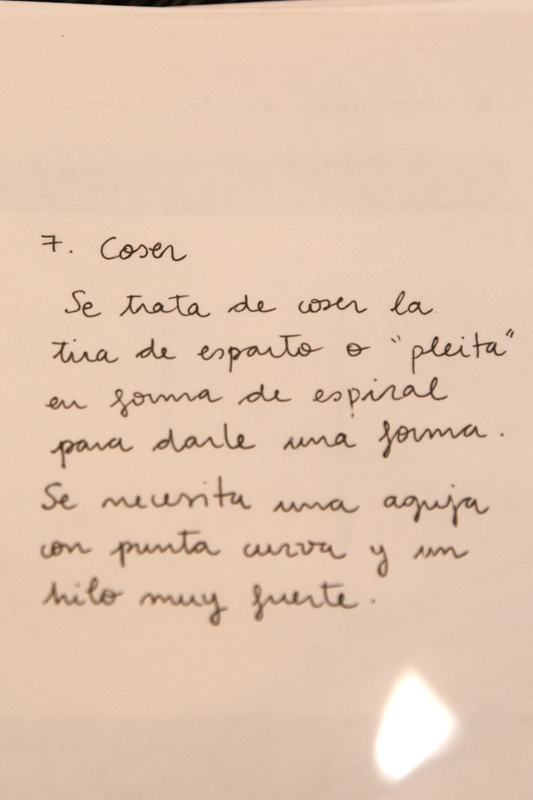 7. Coser
Se trata de coser la
tira de esparto o "pleita"
en forma de espiral
para darle una forma.
Se necesita una aguja
con punta curva y un
hilo muy fuerte.